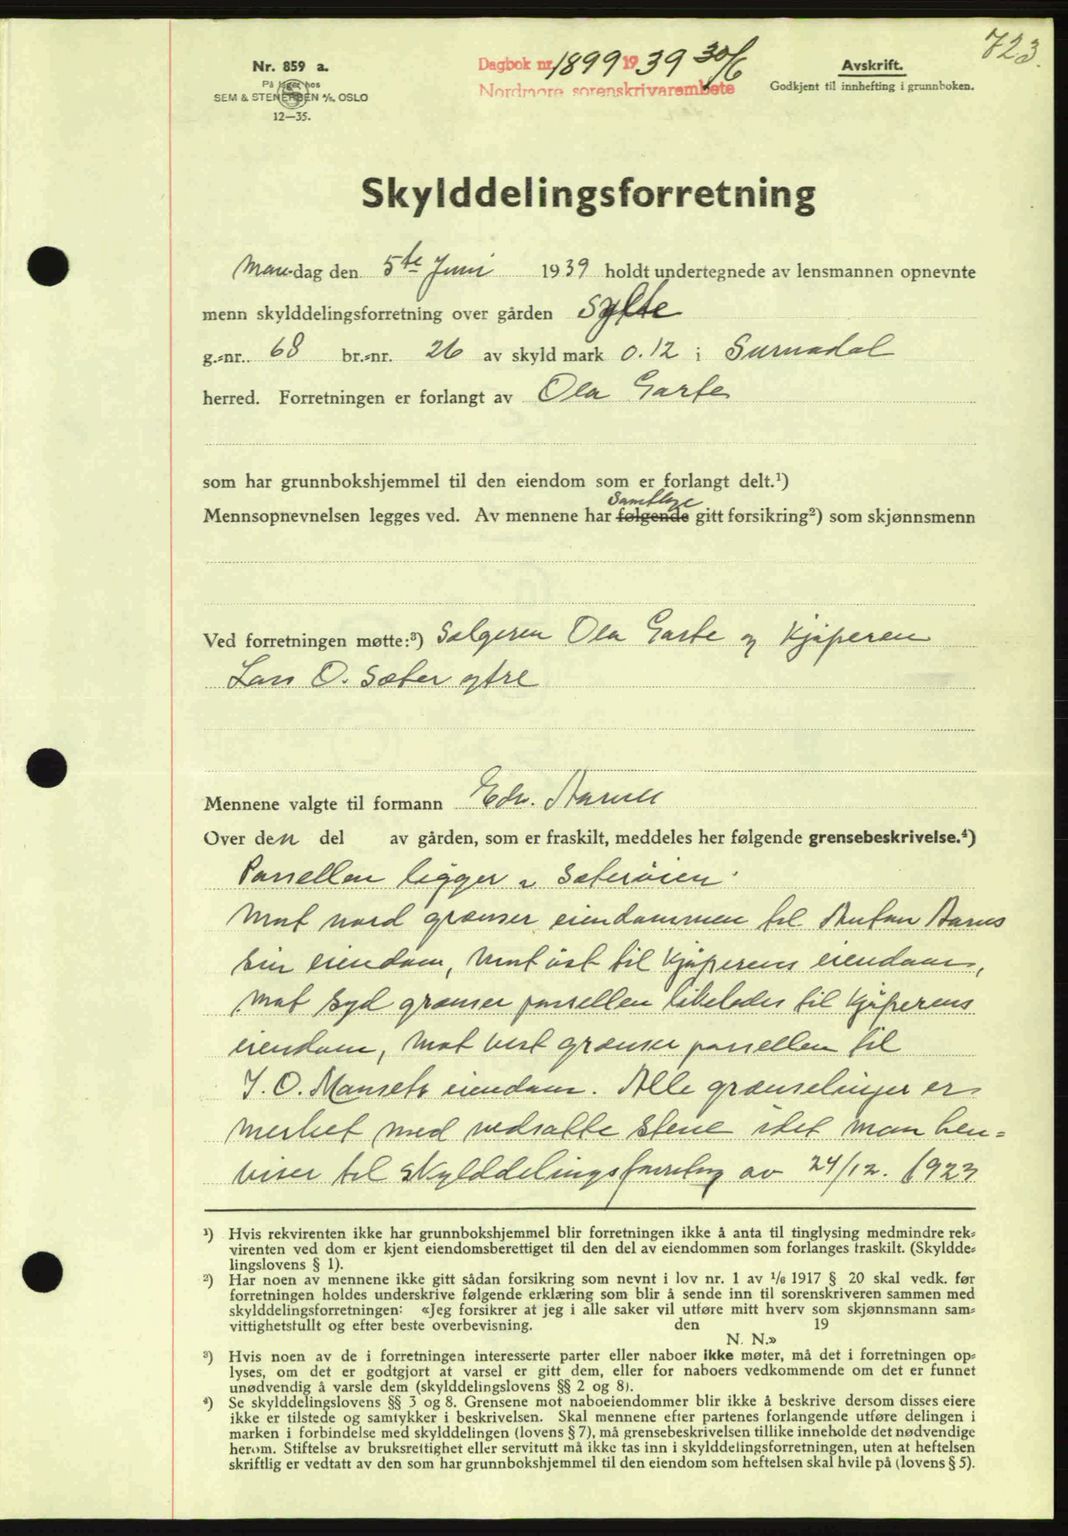 723.
Nr. 859 a.
På lager hos
SEM & STENERSEN A/S, OSLO
12—35.
Dagbok nr. 1899 1939 30/6
Nordmøre sorenskrivarembete
Avskrift.
Godkjent til innhefting i grunnboken.
Skylddelingsforretning
Mandag den 5te Juni 1939 holdt undertegnede av lensmannen opnevnte
menn skylddelingsforretning over gården Sylte
g.-nr. 68 br.-nr. 26 av skyld mark 0.12 i Surnadal
herred. Forretningen er forlangt av Ola Garte
som har grunnbokshjemmel til den eiendom som er forlangt delt.¹)
Samtlige
Mennsopnevnelsen legges ved. Av mennene har følgende gitt forsikring²) som skjønnsmenn
Ved forretningen møtte:³) Selgeren Ola Garte og Kjøperen
Lars O. Sæter ytre
Mennene valgte til formann Edv.
Over den del av gården, som er fraskilt, meddeles her følgende grensebeskrivelse.⁴)
Parsellen ligger i Sæterøien.
Mot nord grænser eiendommen til Anton Aarnes
sin eiendom, mot øst til Kjøperens eiendom,
mot syd grænser parsellen likeledes til Kjøperens
eiendom, mot vest grænser parsellen til
J. O. Mauseth eiendom. Alle grænselinjer er
merket med nedsatte stene idet man hen=
viser til skylddelingsforretning av 24/12. 1923
¹) Hvis rekvirenten ikke har grunnbokshjemmel blir forretningen ikke å anta til tinglysing medmindre rek-
virenten ved dom er kjent eiendomsberettiget til den del av eiendommen som forlanges fraskilt. (Skyldde-
lingslovens § 1).
²) Har noen av mennene ikke gitt sådan forsikring som nevnt i lov nr. 1 av 1/6 1917 § 20 skal vedk. før
forretningen holdes underskrive følgende erklæring som blir å sende inn til sorenskriveren sammen med
skylddelingsforretningen: «Jeg forsikrer at jeg i alle saker vil utføre mitt hverv som skjønnsmann sam-
vittighetsfullt og efter beste overbevisning. den 19
N. N.»
³) Hvis noen av de i forretningen interesserte parter eller naboer ikke møter, må det i forretningen op-
lyses, om det er godtgjort at varsel er gitt dem, eller for naboers vedkommende om det er funnet
unødvendig å varsle dem (skylddelingslovens §§ 2 og 8).
⁴) Se skylddelingslovens §§ 3 og 8. Grensene mot naboeiendommer blir ikke å beskrive dersom disses eiere
ikke er tilstede og samtykker i beskrivelsen. Skal mennene efter partenes forlangende utføre delingen i
marken i forbindelse med skylddelingen (lovens § 7), må grensebeskrivelsen tillike inneholde det nødvendige
herom. Stiftelse av bruksrettighet eller servitutt må ikke tas inn i skylddelingsforretningen, uten at heftelsen
skriftlig er vedtatt av den som har grunnbokshjemmel til den eiendom som heftelsen skal hvile på (lovens § 5).